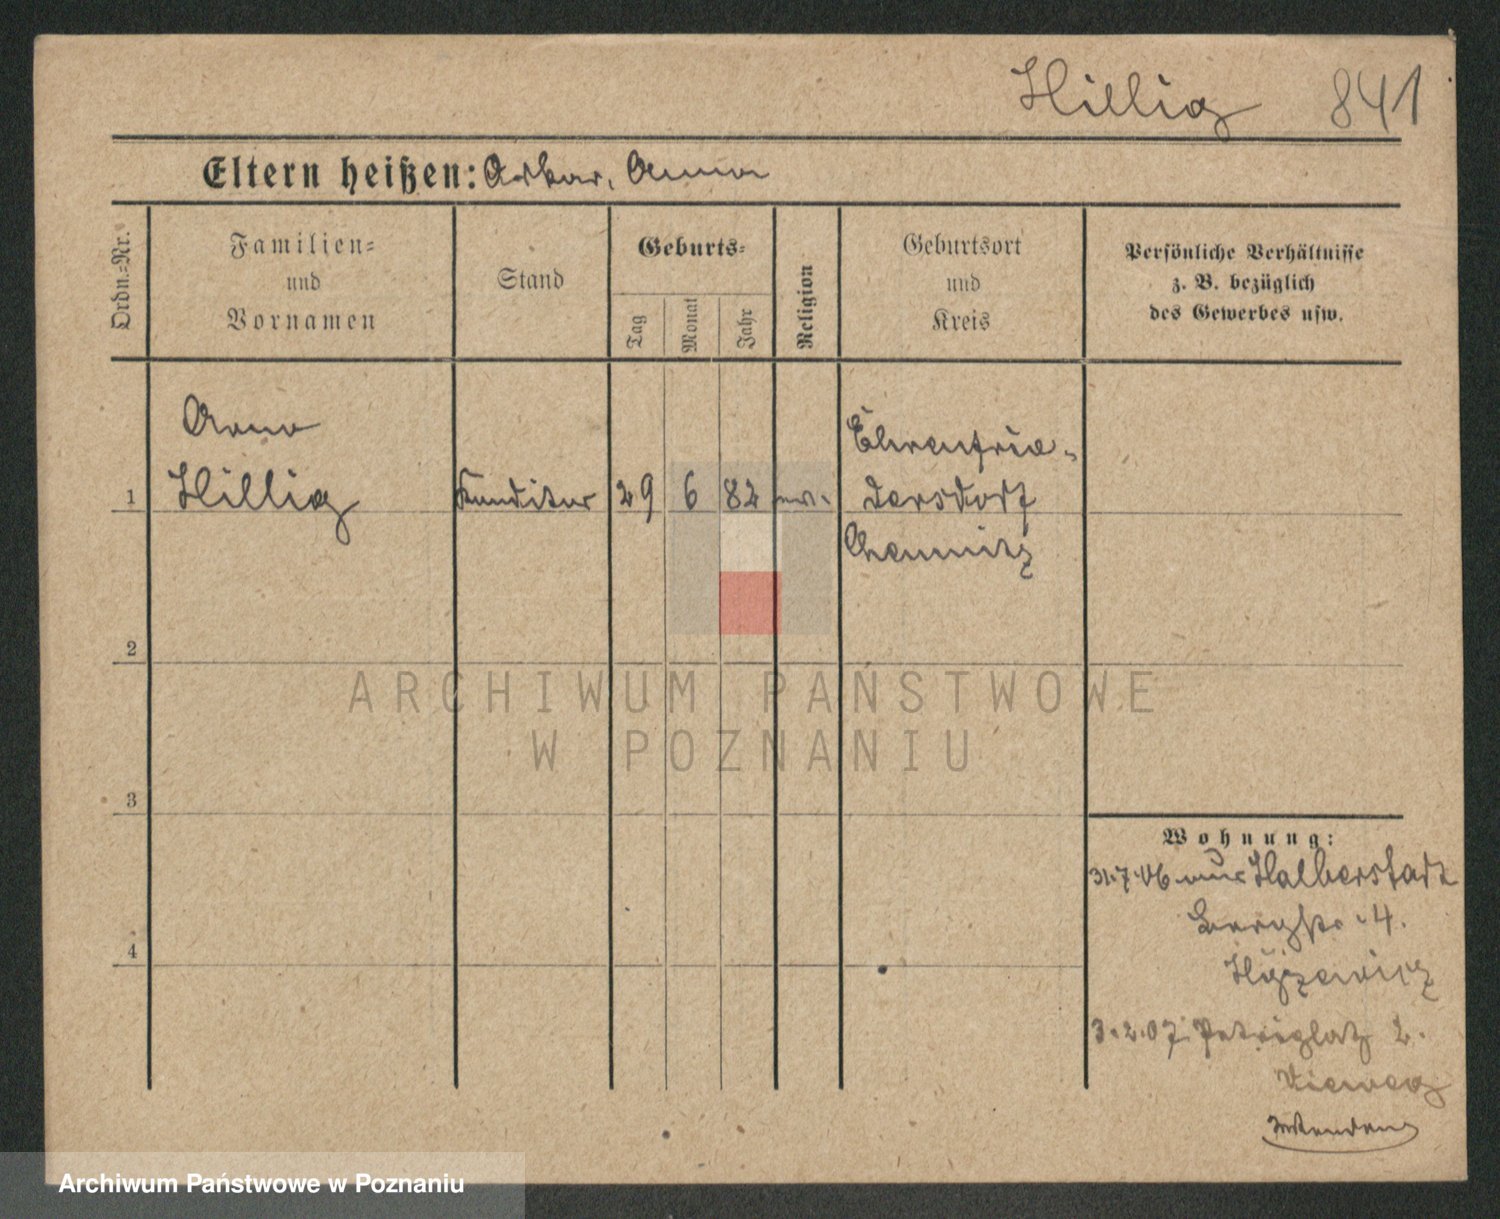 Hillig 841
Eltern heißen: Oskar, Anna
Ordn.=Nr.
Familien=
und
Vornamen
Stand
Geburts=
Tag
Monat
Jahr
Religion
Geburtsort
und
Kreis
Persönliche Verhältnisse
z. B. bezüglich
des Gewerbes usw.
Arno
1 Hillig Konditor 29 6 82 ev.
Ehrenfrie-
dersdorf
Chemnitz
2
3
4
Wohnung:
31.7.06 aus Halberstadt
Bergstr. 4.
3.2.07. Petriplatz 2.
Vieweg
Wenden
ARCHIWUM PAŃSTWOWE
W POZNANIU
Archiwum Państwowe w Poznaniu